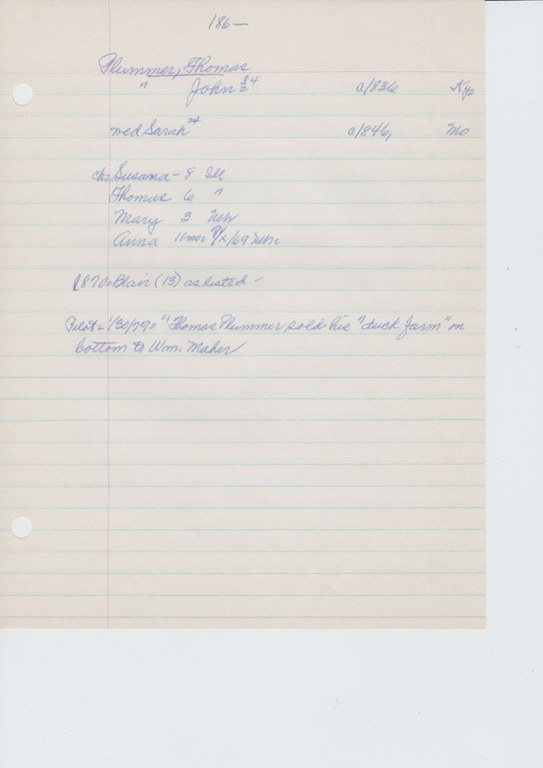 186—
Plummer, Thomas
" John 34 c/1836 Ky
wed Sarah 24 c/1846, Mo
ch: Susana - 8 Ill
Thomas 6 "
Mary 3 Neb
Anna 11mos /69 Nebr
1870 Blair (13) as listed -
Pilot: 1/30/79: "Thomas Plummer sold his "duck farm" on
bottom to Wm. Maher